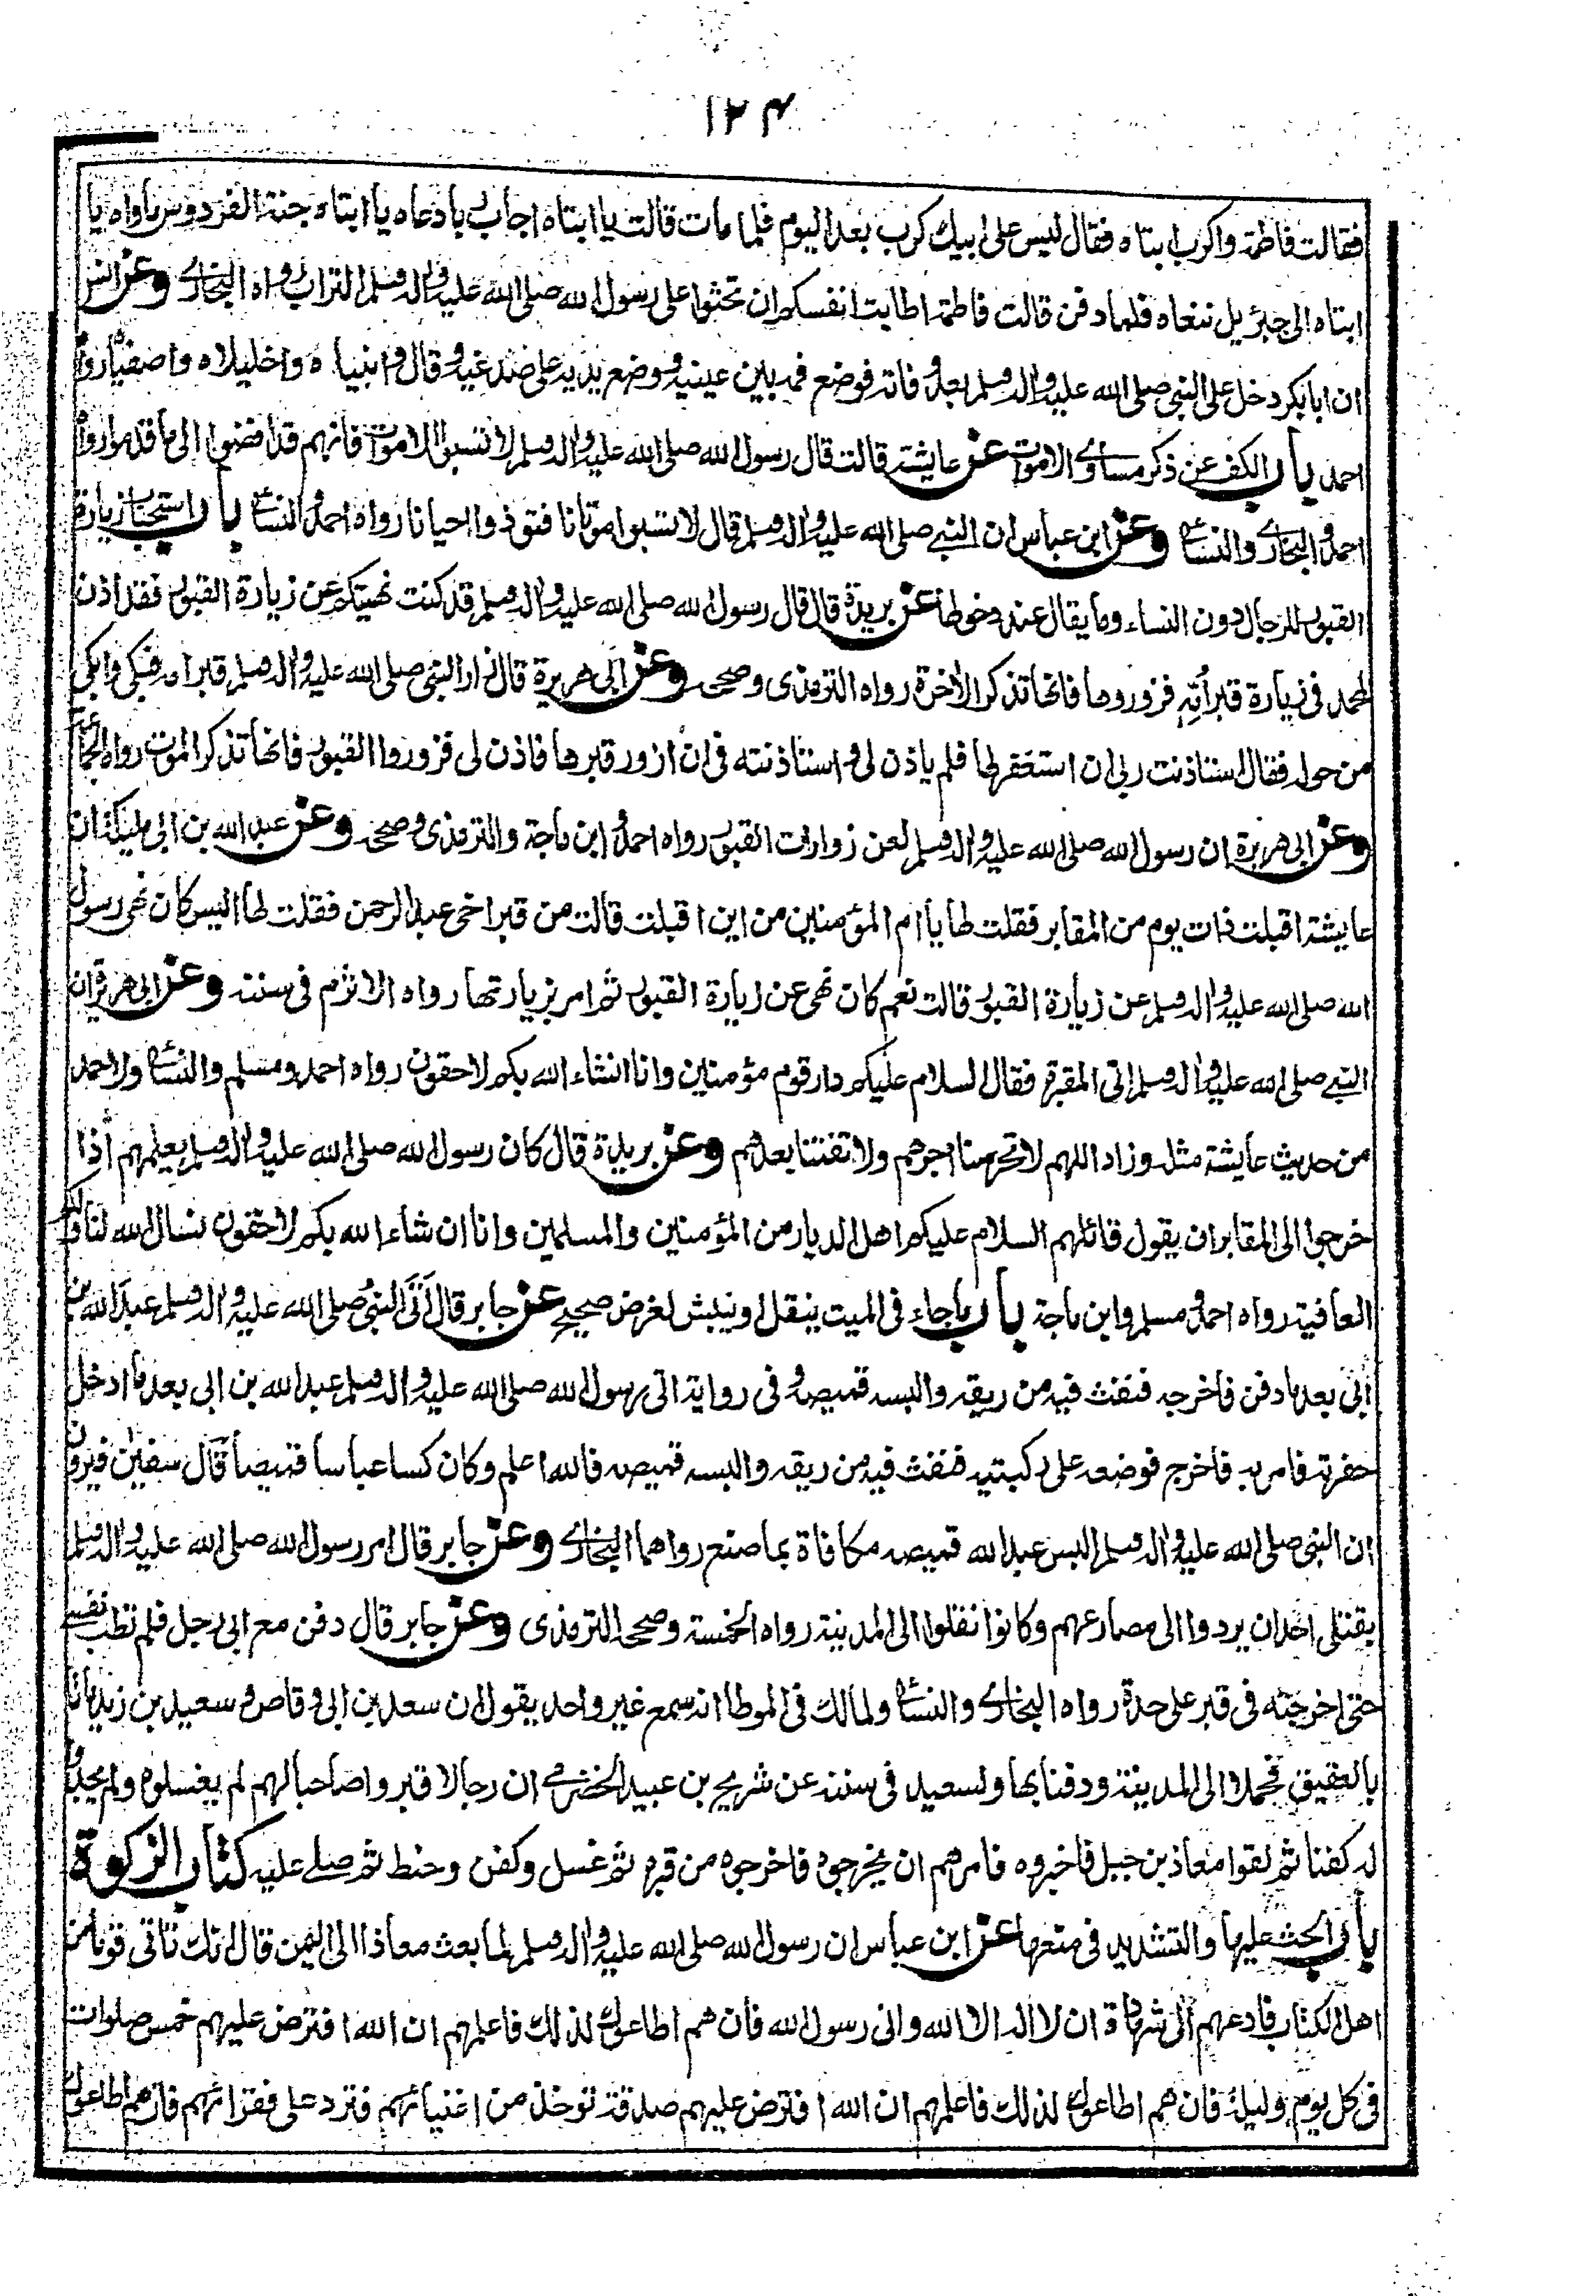 ١٢٤
فقالت فاطمة واكرب ابتاه فقال ليس على ابيك كرب بعد اليوم فلما مات قالت يا ابتاه اجاب ربا دعاه يا ابتاه جنة الفردوس مأواه يا
ابتاه الى جبرئيل ننعاه فلما دفن قالت فاطمة اطابت انفسكم ان تحثوا على رسول الله صلى الله عليه واله وسلم التراب رواه البخاري وعن انس
ان ابا بكر دخل على النبي صلى الله عليه واله وسلم بعد وفاته فوضع فمه بين عينيه ووضع يديه على صدغيه وقال وا نبياه واخليلاه واصفياه رواه
احمد باب الكف عن ذكر مساوي الاموات عن عايشة قالت قال رسول الله صلى الله عليه واله وسلم لا تسبوا الاموات فانهم قد افضوا الى ما قدموا رواه
احمد والبخاري والنسائي وعن ابن عباس ان النبي صلى الله عليه واله وسلم قال لا تسبوا امواتنا فتوذوا احيانا رواه احمد والنسائي باب استحباب زيارة
القبور للرجال دون النساء وما يقال عند دخولها عن بريدة قال قال رسول الله صلى الله عليه واله وسلم قد كنت نهيتكم عن زيارة القبور فقد اذن
لمحمد في زيارة قبر أمه فزوروها فانها تذكر الاخرة رواه الترمذي وصححه وعن ابي هريرة قال زار النبي صلى الله عليه واله وسلم قبر امه فبكى وابكى
من حوله فقال استاذنت ربي ان استغفر لها فلم ياذن لي واستاذنته في ان ازور قبرها فاذن لي فزوروا القبور فانها تذكر الموت رواه الجماعة
وعن ابي هريرة ان رسول الله صلى الله عليه واله وسلم لعن زوارات القبور رواه احمد وابن ماجة والترمذي وصححه وعن عبد الله بن ابي مليكة ان
عايشة اقبلت ذات يوم من المقابر فقلت لها يا ام المؤمنين من اين اقبلت قالت من قبر اخي عبد الرحمن فقلت لها اليس كان نهى رسول
الله صلى الله عليه واله وسلم عن زيارة القبور قالت نعم كان نهى عن زيارة القبور ثم امر بزيارتها رواه الاثرم في سننه وعن ابي هريرة ان
النبي صلى الله عليه واله وسلم اتى المقبرة فقال السلام عليكم دار قوم مؤمنين وانا انشاء الله بكم لاحقون رواه احمد ومسلم والنسائي ولاحمد
من حديث عايشة مثله وزاد اللهم لا تحرمنا اجرهم ولا تفتنا بعدهم وعن بريدة قال كان رسول الله صلى الله عليه واله وسلم يعلمهم اذا
خرجوا الى المقابر ان يقول قائلهم السلام عليكم اهل الديار من المؤمنين والمسلمين وانا ان شاء الله بكم لاحقون نسال الله لنا ولكم
العافية رواه احمد ومسلم وابن ماجة باب ما جاء في الميت ينقل او ينبش لغرض صحيح عن جابر قال أتى النبي صلى الله عليه واله وسلم عبد الله بن
أبي بعد ما دفن فاخرجه فنفث فيه من ريقه والبسه قميصه وفي رواية اتى رسول الله صلى الله عليه واله وسلم عبد الله بن ابي بعد ما ادخل
حفرته فامر به فاخرج فوضعه على ركبتيه فنفث فيه من ريقه والبسه قميصه فالله اعلم وكان كسا عباسا قميصا قال سفين فيرون
ان النبي صلى الله عليه واله وسلم البس عبد الله قميصه مكافاة بما صنع رواهما البخاري وعن جابر قال امر رسول الله صلى الله عليه واله وسلم
بقتلى احد ان يردوا الى مصارعهم وكانوا نقلوا الى المدينة رواه الخمسة وصححه الترمذي وعن جابر قال دفن مع ابي رجل فلم تطب نفسي
حتى اخرجته في قبر على حدة رواه البخاري والنسائي ولمالك في الموطا انه سمع غير واحد يقول ان سعد بن ابي وقاص وسعيد بن زيد ماتا
بالعقيق فحملا الى المدينة ودفنا بها ولسعيد في سننه عن شريح بن عبيد الحضرمي ان رجالا قبروا صاحبا لهم لم يغسلوه ولم يجدوا
له كفنا ثم لقوا معاذ بن جبل فاخبروه فامرهم ان يخرجوه فاخرجوه من قبره ثم غسل وكفن وحنط ثم صلى عليه كتاب الزكوة
باب الحث عليها والتشديد في منعها عن ابن عباس ان رسول الله صلى الله عليه واله وسلم لما بعث معاذا الى اليمن قال انك تاتي قوما من
اهل الكتاب فادعهم الى شهادة ان لا اله الا الله واني رسول الله فان هم اطاعوك لذلك فاعلمهم ان الله افترض عليهم خمس صلوات
في كل يوم وليلة فان هم اطاعوك لذلك فاعلمهم ان الله افترض عليهم صدقة توخذ من اغنيائهم فترد على فقرائهم فان هم اطاعوك